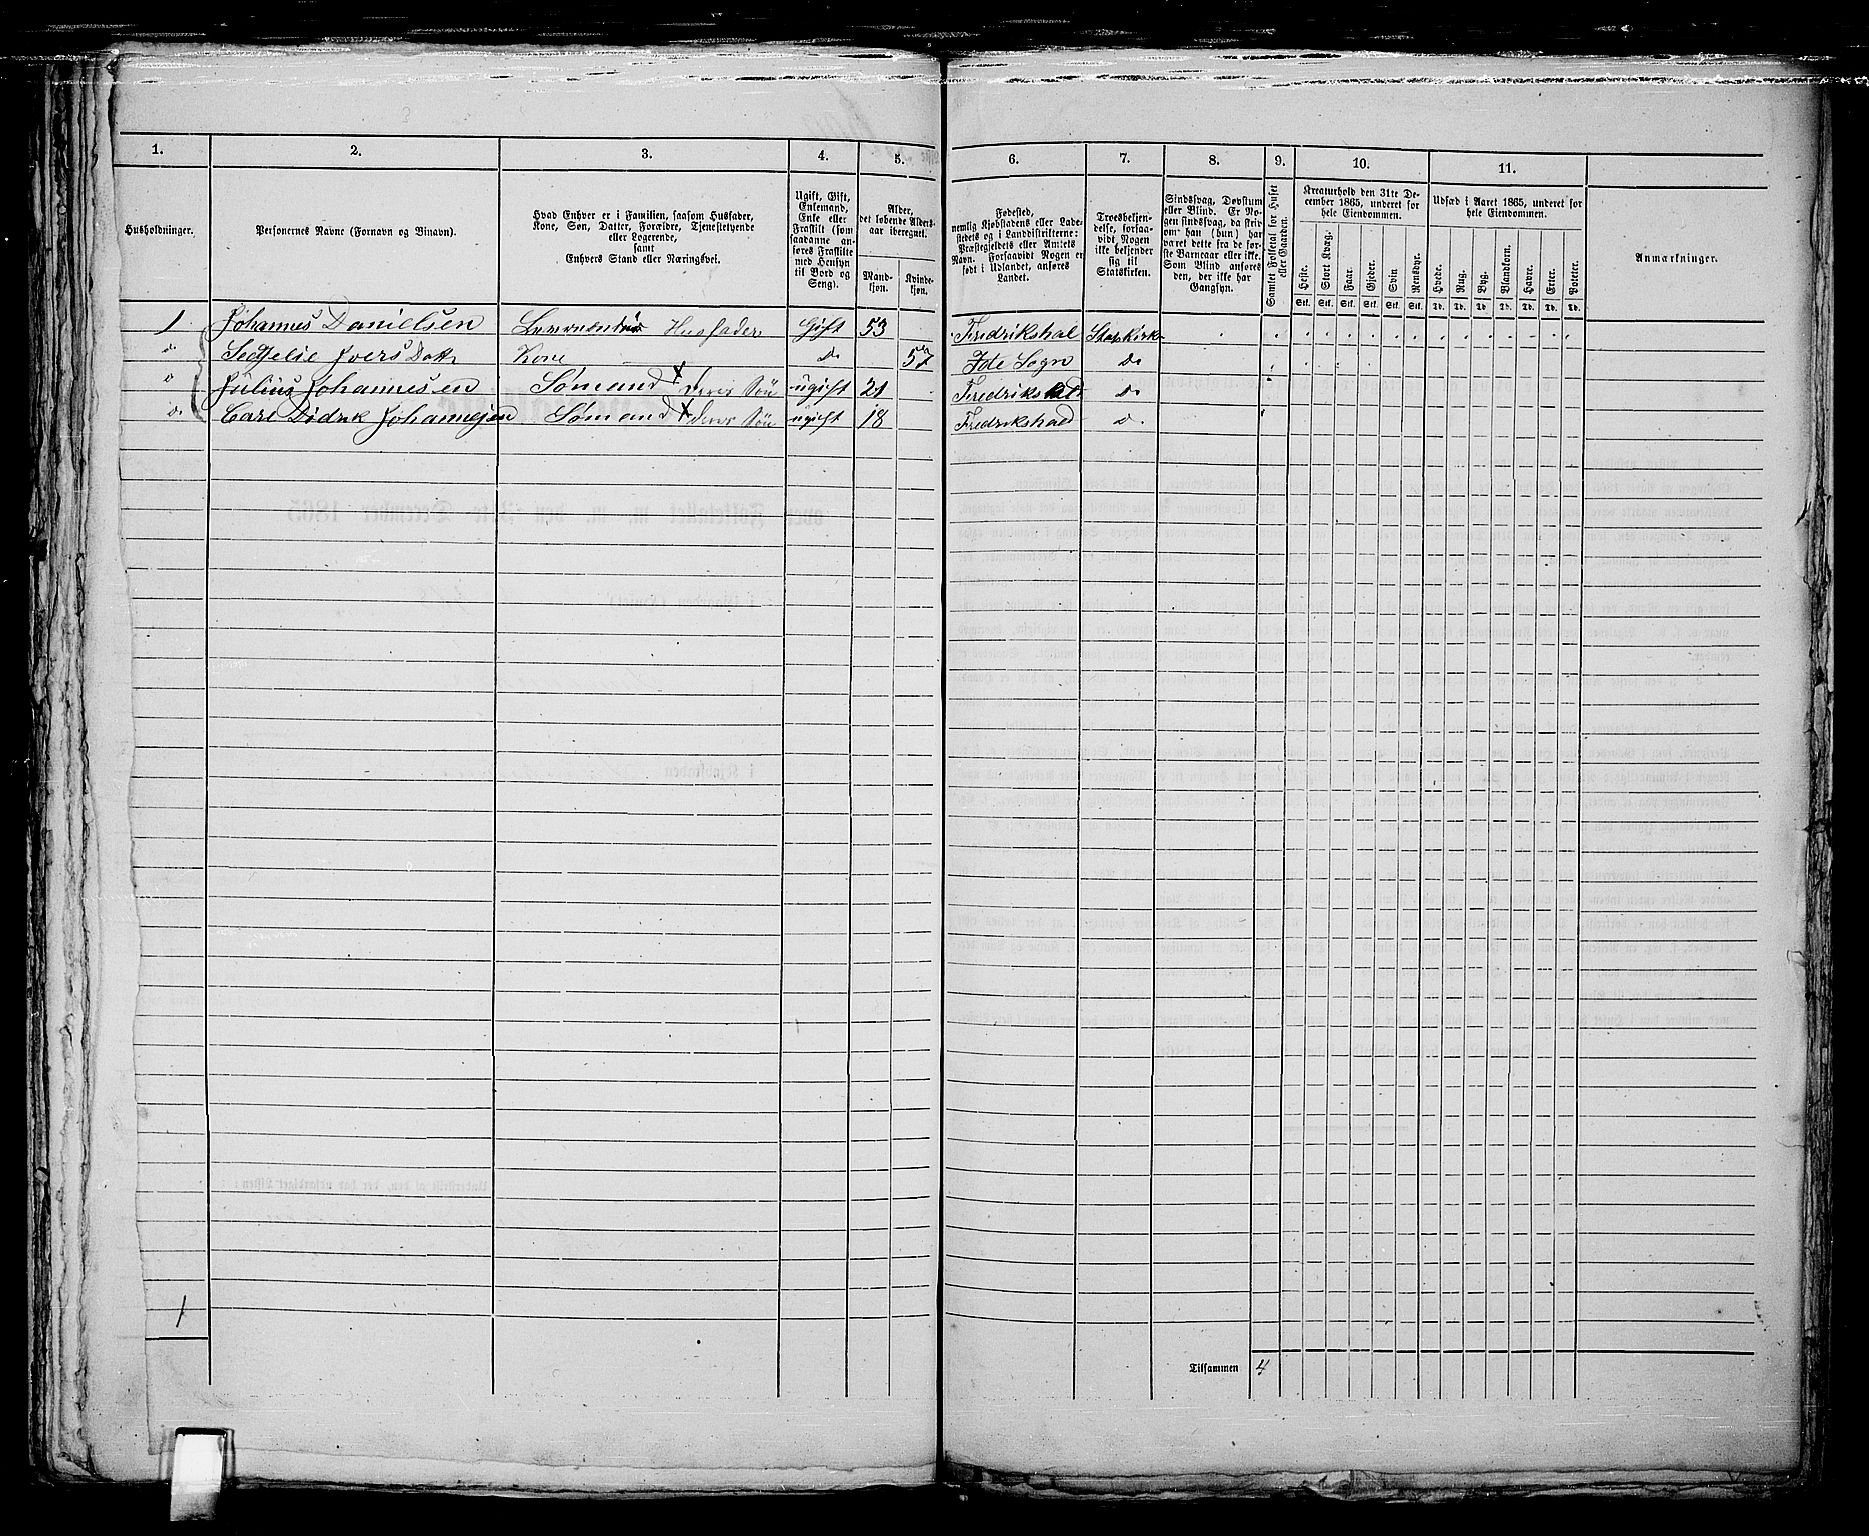 1. 2. 3. 4. 5. 6. 7. 8. 9. 10. 11.
Husholdninger.
Personernes Navne (Fornavn og Binavn).
Hvad Enhver er i Familien, saasom Husfader,
Kone, Søn, Datter, Forældre, Tjenestetyende
eller Logerende,
samt
Enhvers Stand eller Næringsvei.
Ugift, Gift,
Enkemand,
Enke eller
Fraskilt (som
saadanne an-
føres Fraskilte
med Hensyn
til Bord og
Seng).
Alder,
det løbende Alders-
aar iberegnet.
Mand-
kjøn.
Kvinde-
kjøn.
Fødested,
nemlig Kjøbstadens eller Lade-
stedets og i Landdistrikterne:
Præstegjeldets eller Amtets
Navn. Forsaavidt Nogen er
født i Udlandet, anføres
Landet.
Troesbekjen-
delse, forsaa-
vidt Nogen
ikke bekjender
sig til
Statskirken.
Sindssvag, Døvstum
eller Blind. Er No-
gen sindssvag, da skriv-
om han (hun) har
været dette fra de før-
ste Barneaar eller ikke.
Som Blind anføres
den, der ikke har
Gangsyn.
Samlet Folketal for Huset
eller Gaarden.
Kreaturhold den 31te De-
cember 1865, underet for
hele Eiendommen.
Heste. Stort Kvæg. Faar. Gjeder. Svin. Rensdyr.
Stk. Stk. Stk. Stk. Stk. Stk.
Udsæd i Aaret 1865, underet for
hele Eiendommen.
Hvede. Rug. Byg. Blandkorn. Havre. Erter. Poteter.
Td. Td. Td. Td. Td. Td. Td.
Anmærkninger.
1 Johannes Danielsen Husfader Gift 53 Fredrikshal Statskirk
do Iversdatt Kone do 57 Ide Sogn do
do Julius Johannesen Sømand x deres Søn ugift 21 Fredrikshald do
do Carl Didrk Johannesen Sømand x deres Søn ugift 18 Fredrikshald do
1
Tilsammen 4